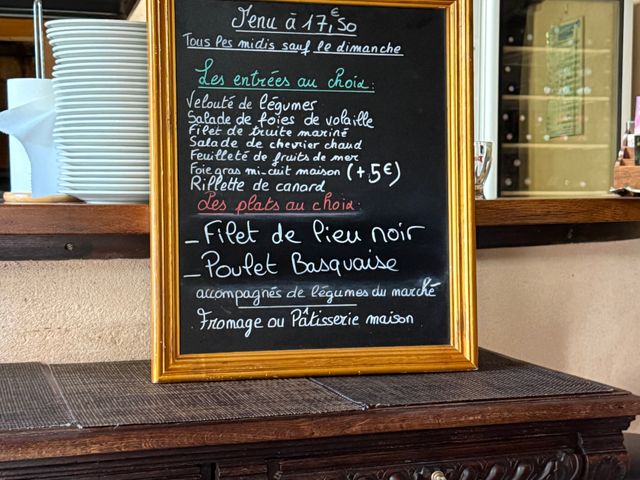 Menu à 17,€50
Tous les midis sauf le dimanche
Les entrées au choix :
Velouté de légumes
Salade de foies de volaille
Filet de truite mariné
Salade de chevrier chaud
Feuilleté de fruits de mer
Foie gras mi-cuit maison (+5€)
Rillette de canard
Les plats au choix :
- Filet de lieu noir
- Poulet Basquaise
accompagnés de légumes du marché
Fromage ou Pâtisserie maison